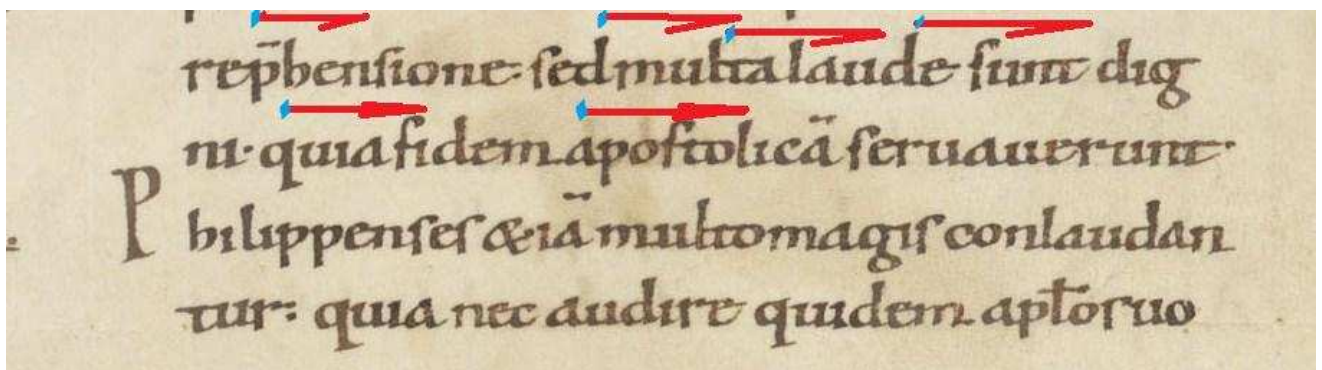 rep̄hensione· sed multa laude sunt dig
ni· quia fidem apostolicā seruauerunt·
Philippenses & iā multo magis conlaudan
tur: quia nec audire quidem apl̄os uo